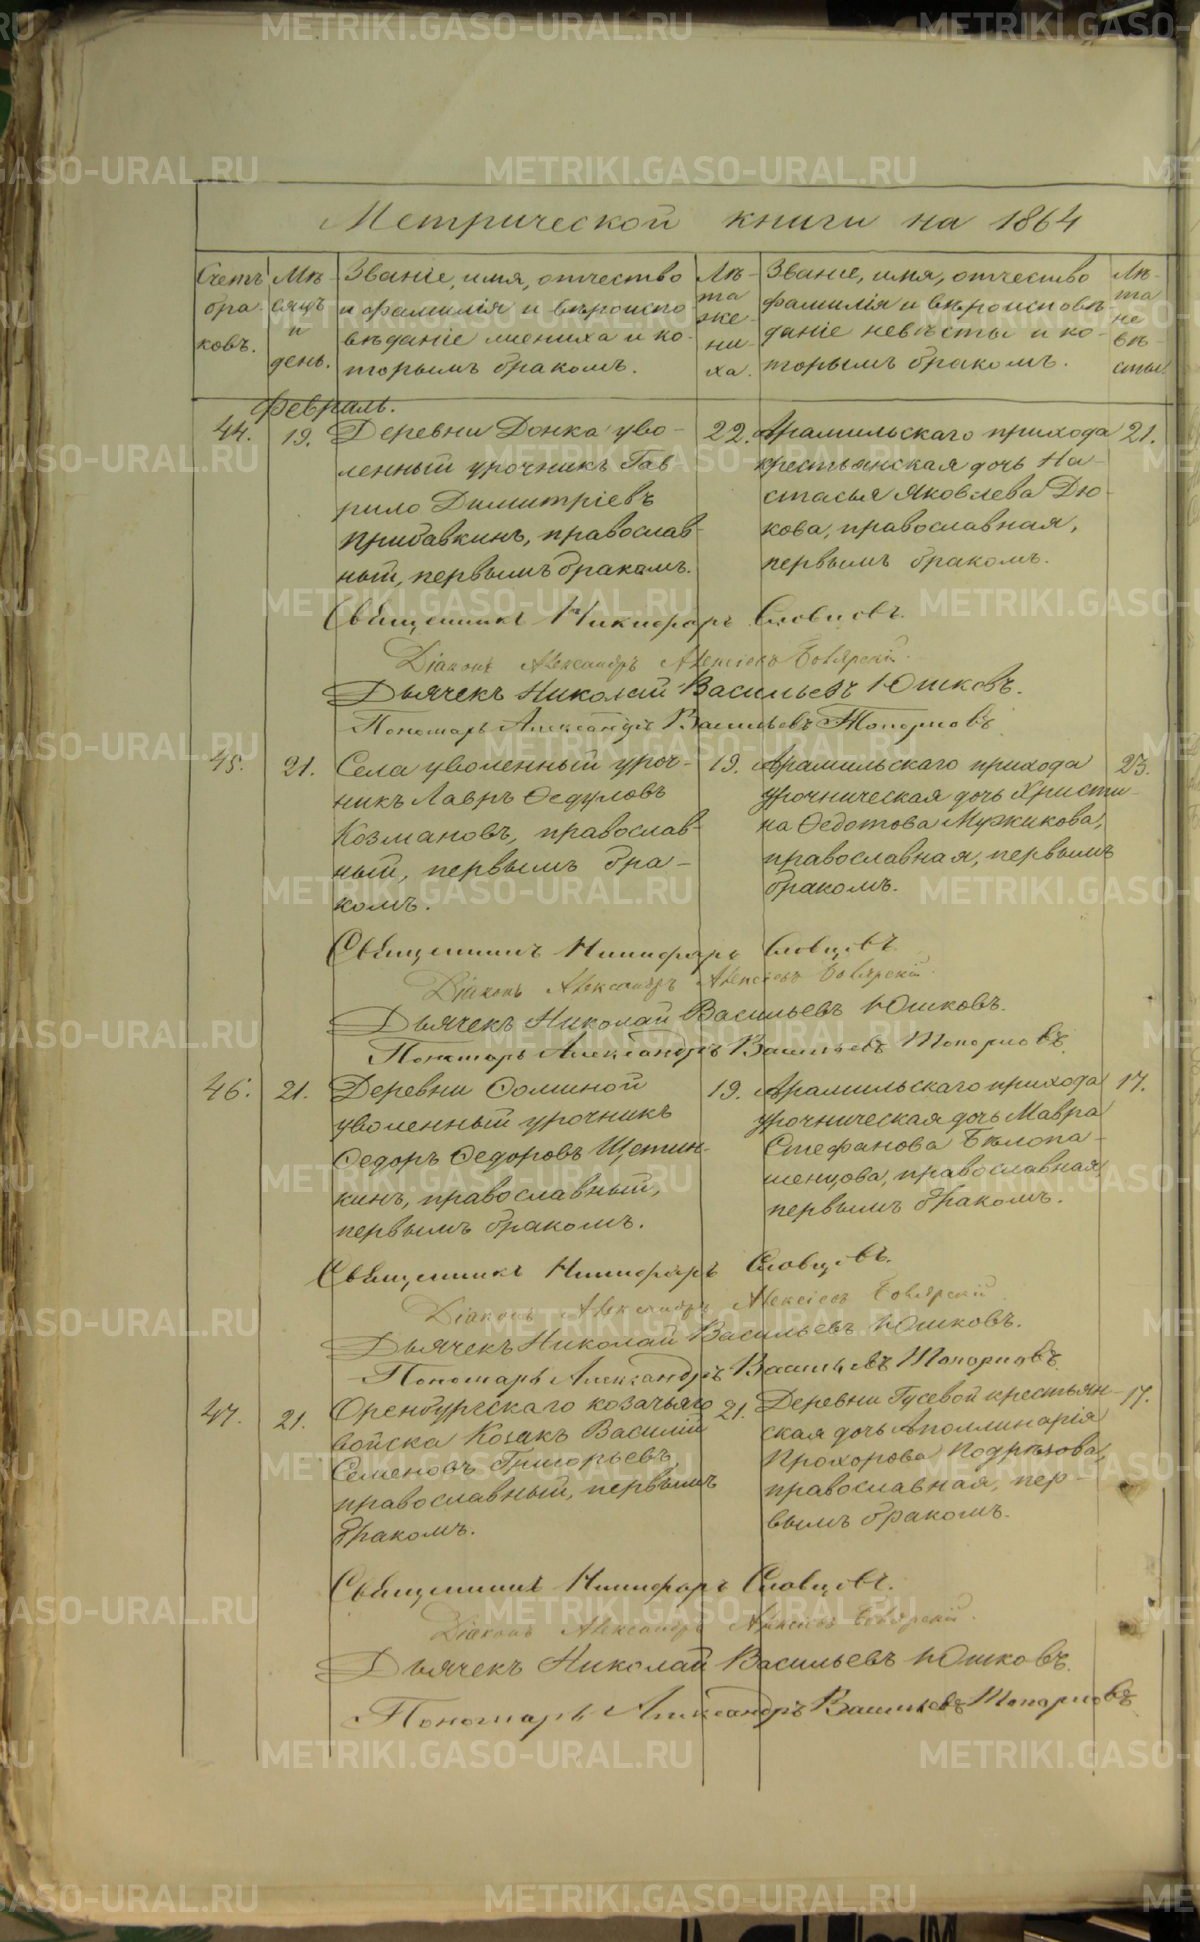 Метрической книги на 1864
Счетъ бра- ковъ.
Мѣ- сяцъ и день.
Званіе, имя, отчество
и фамилія и вѣроиспо
вѣданіе жениха и ко-
торымъ бракомъ.
Лѣ- та же- ни- ха.
Званіе, имя, отчество
фамилія и вѣроисповѣ
даніе невѣсты и ко-
торымъ бракомъ.
Лѣ- та не вѣ- сты.
Февраль.
44. 19.
Деревни Донка уво-
ленный урочникъ Гав
рило Димитріевъ
Прибавкинъ, православ-
ный, первымъ бракомъ.
22.
Арамильскаго прихода
крестьянская дочь На-
стасья Яковлева Дю-
кова, православная,
первымъ бракомъ.
21.
Священникъ Никифоръ Словцовъ.
Діаконъ Александръ Алексіевъ Боярскій.
Дьячекъ Николай Васильевъ Юшковъ.
Пономарь Александръ Васильевъ Топорковъ
45. 21.
Села уволенный уроч-
никъ Лавръ Ѳедуловъ
Козмановъ, православ-
ный, первымъ бра-
комъ.
19.
Арамильскаго прихода
урочническая дочь Христи-
на Ѳедотова Мужикова,
православная, первымъ
бракомъ.
23.
Священникъ Никифоръ Словцовъ.
Діаконъ Александръ Алексіевъ Боярскій.
Дьячекъ Николай Васильевъ Юшковъ.
Пономарь Александръ Васильевъ Топорковъ.
46. 21.
Деревни Ѳоминой
уволенный урочникъ
Ѳедоръ Ѳедоровъ Щетин-
кинъ, православный,
первымъ бракомъ.
19.
Арамильскаго прихода
урочническая дочь Мавра
Стефанова Бѣлопа-
шенцова, православная,
первымъ бракомъ.
17.
Священникъ Никифоръ Словцовъ.
Діаконъ Александръ Алексіевъ Боярскій.
Дьячекъ Николай Васильевъ Юшковъ.
Пономарь Александръ Васильевъ Топорковъ.
47. 21.
Оренбургскаго козачьяго
войска Козакъ Василій
Семеновъ Григорьевъ,
православный, первымъ
бракомъ.
21.
Деревни Гусевой крестьян-
ская дочь Аполлинарія
Прохорова Подрѣзова,
православная, пер-
вымъ бракомъ.
17.
Священникъ Никифоръ Словцовъ.
Діаконъ Александръ Алексіевъ Боярскій.
Дьячекъ Николай Васильевъ Юшковъ.
Пономарь Александръ Васильевъ Топорковъ
METRIKI.GASO-URAL.RU